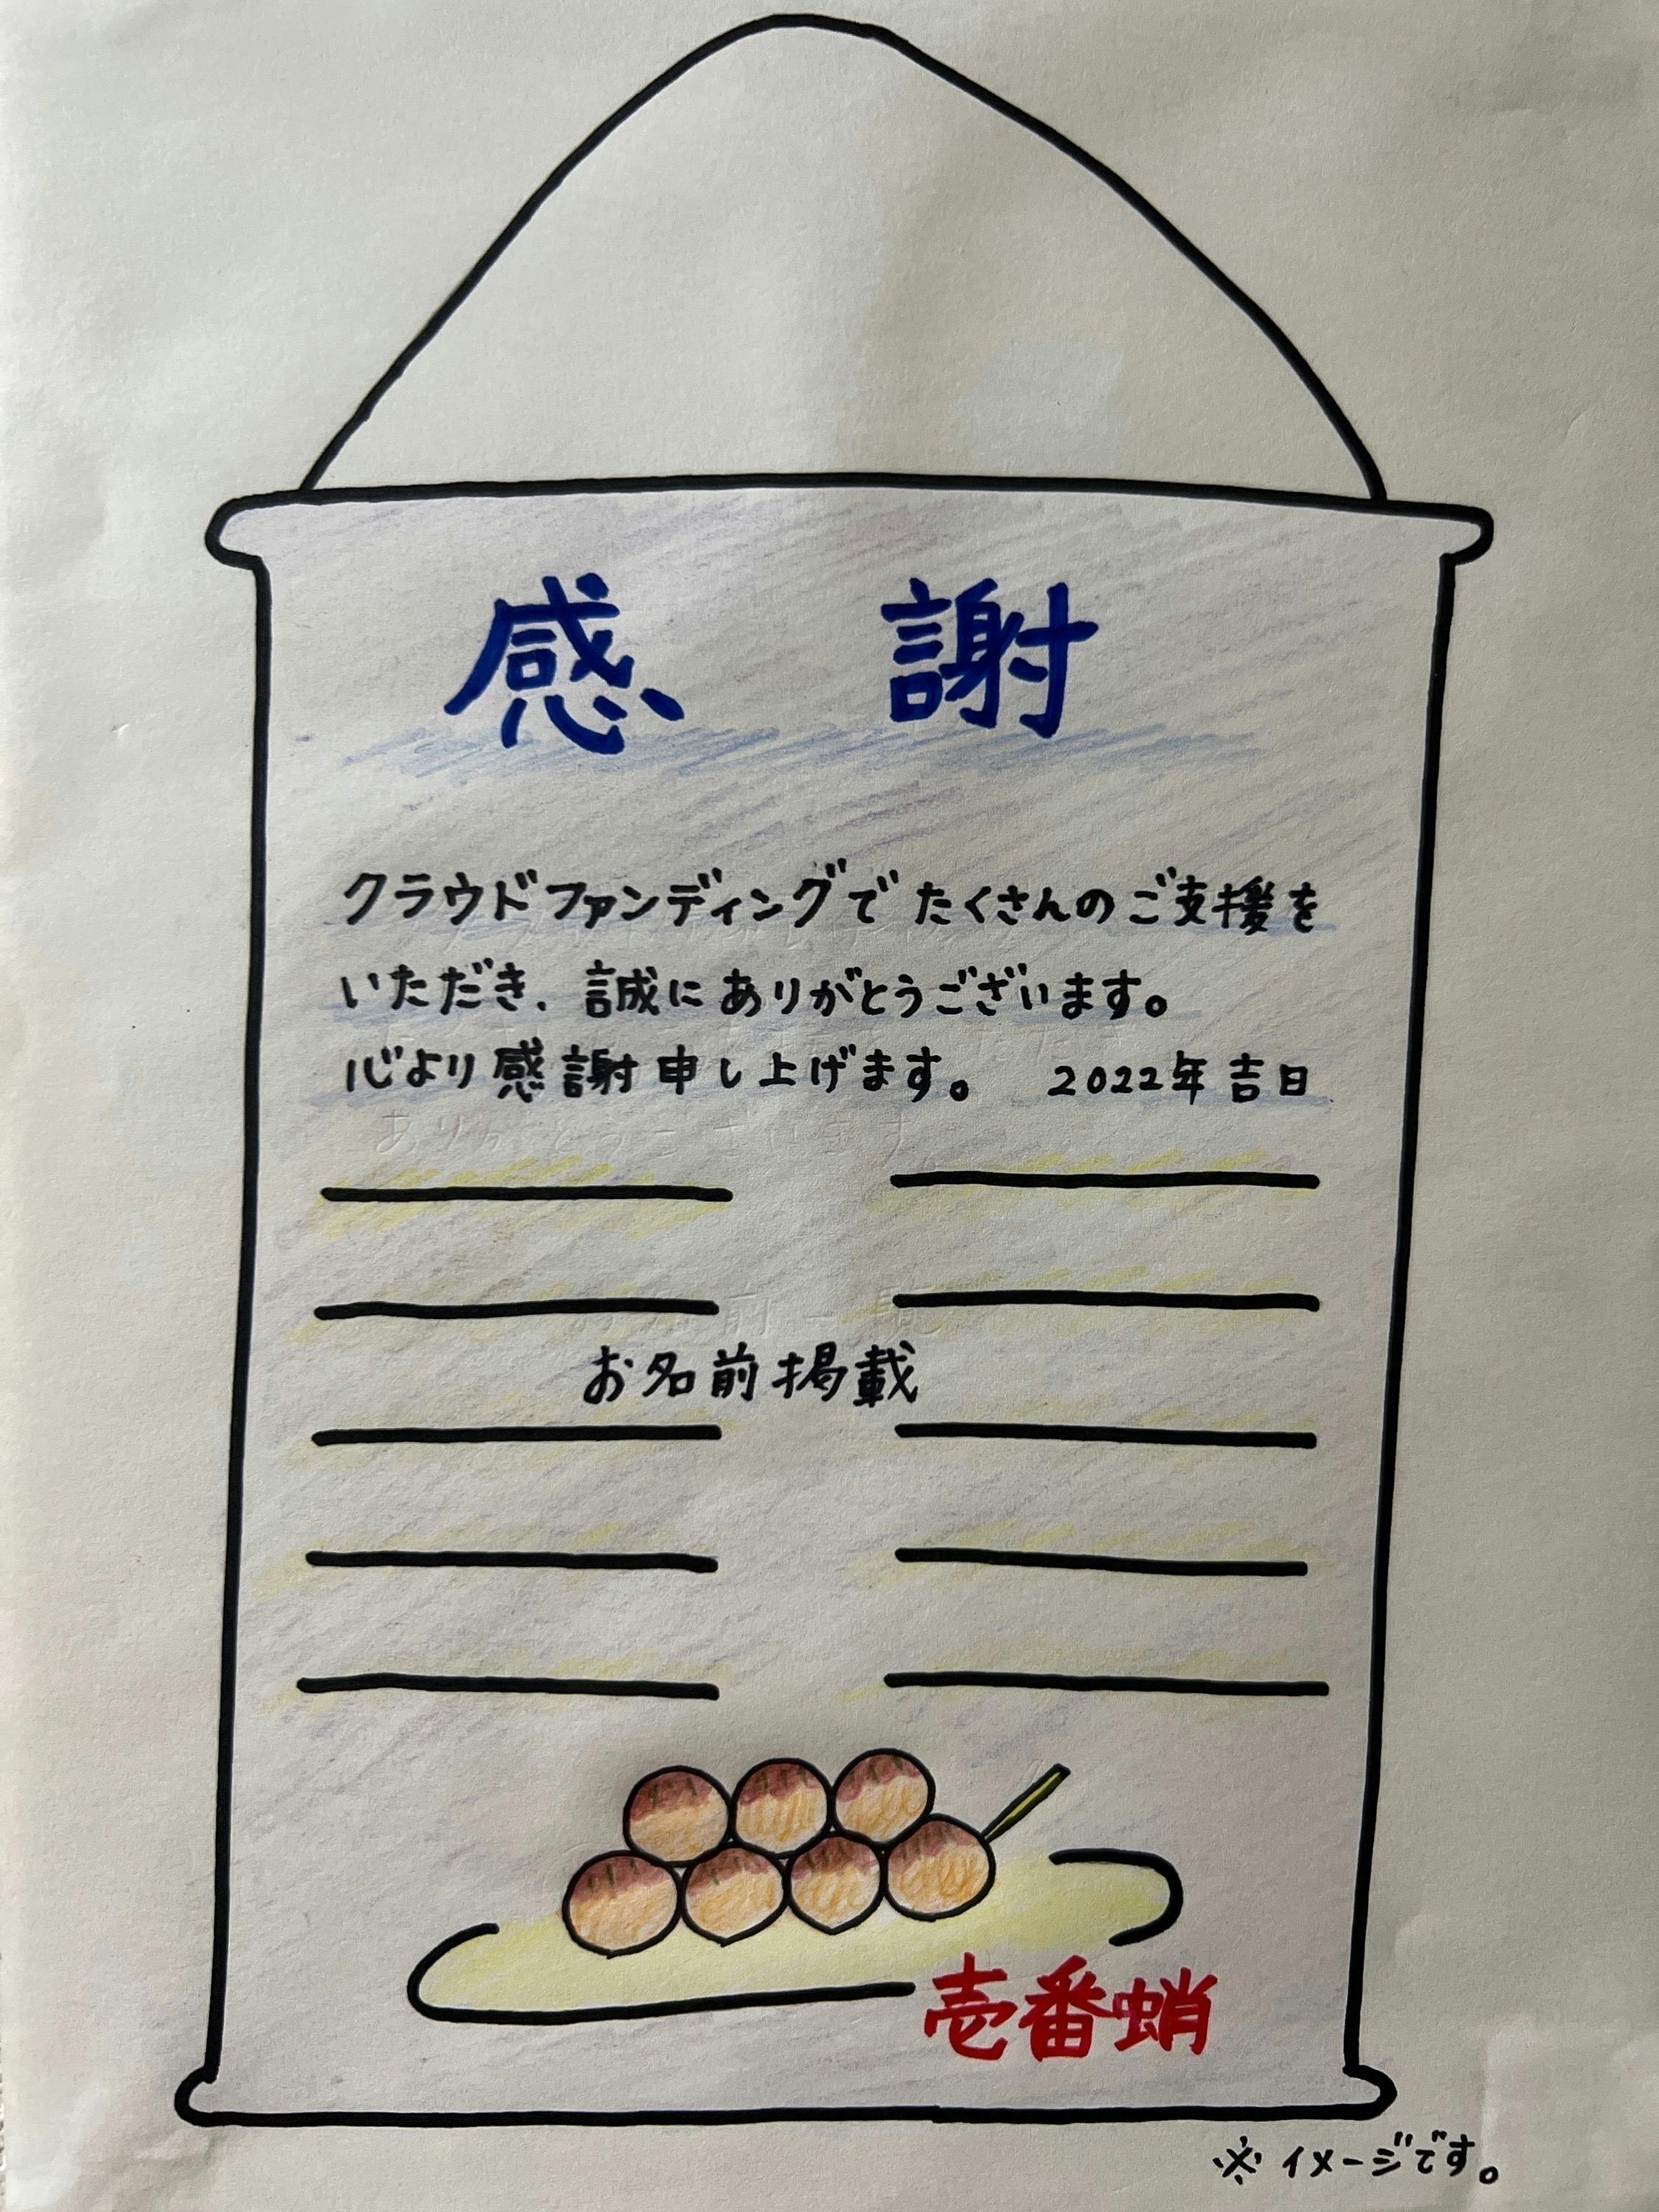 感謝
クラウドファンディングでたくさんのご支援を
いただき、誠にありがとうございます。
心より感謝申し上げます。 2022年吉日
お名前掲載
壱番蛸
※イメージです。